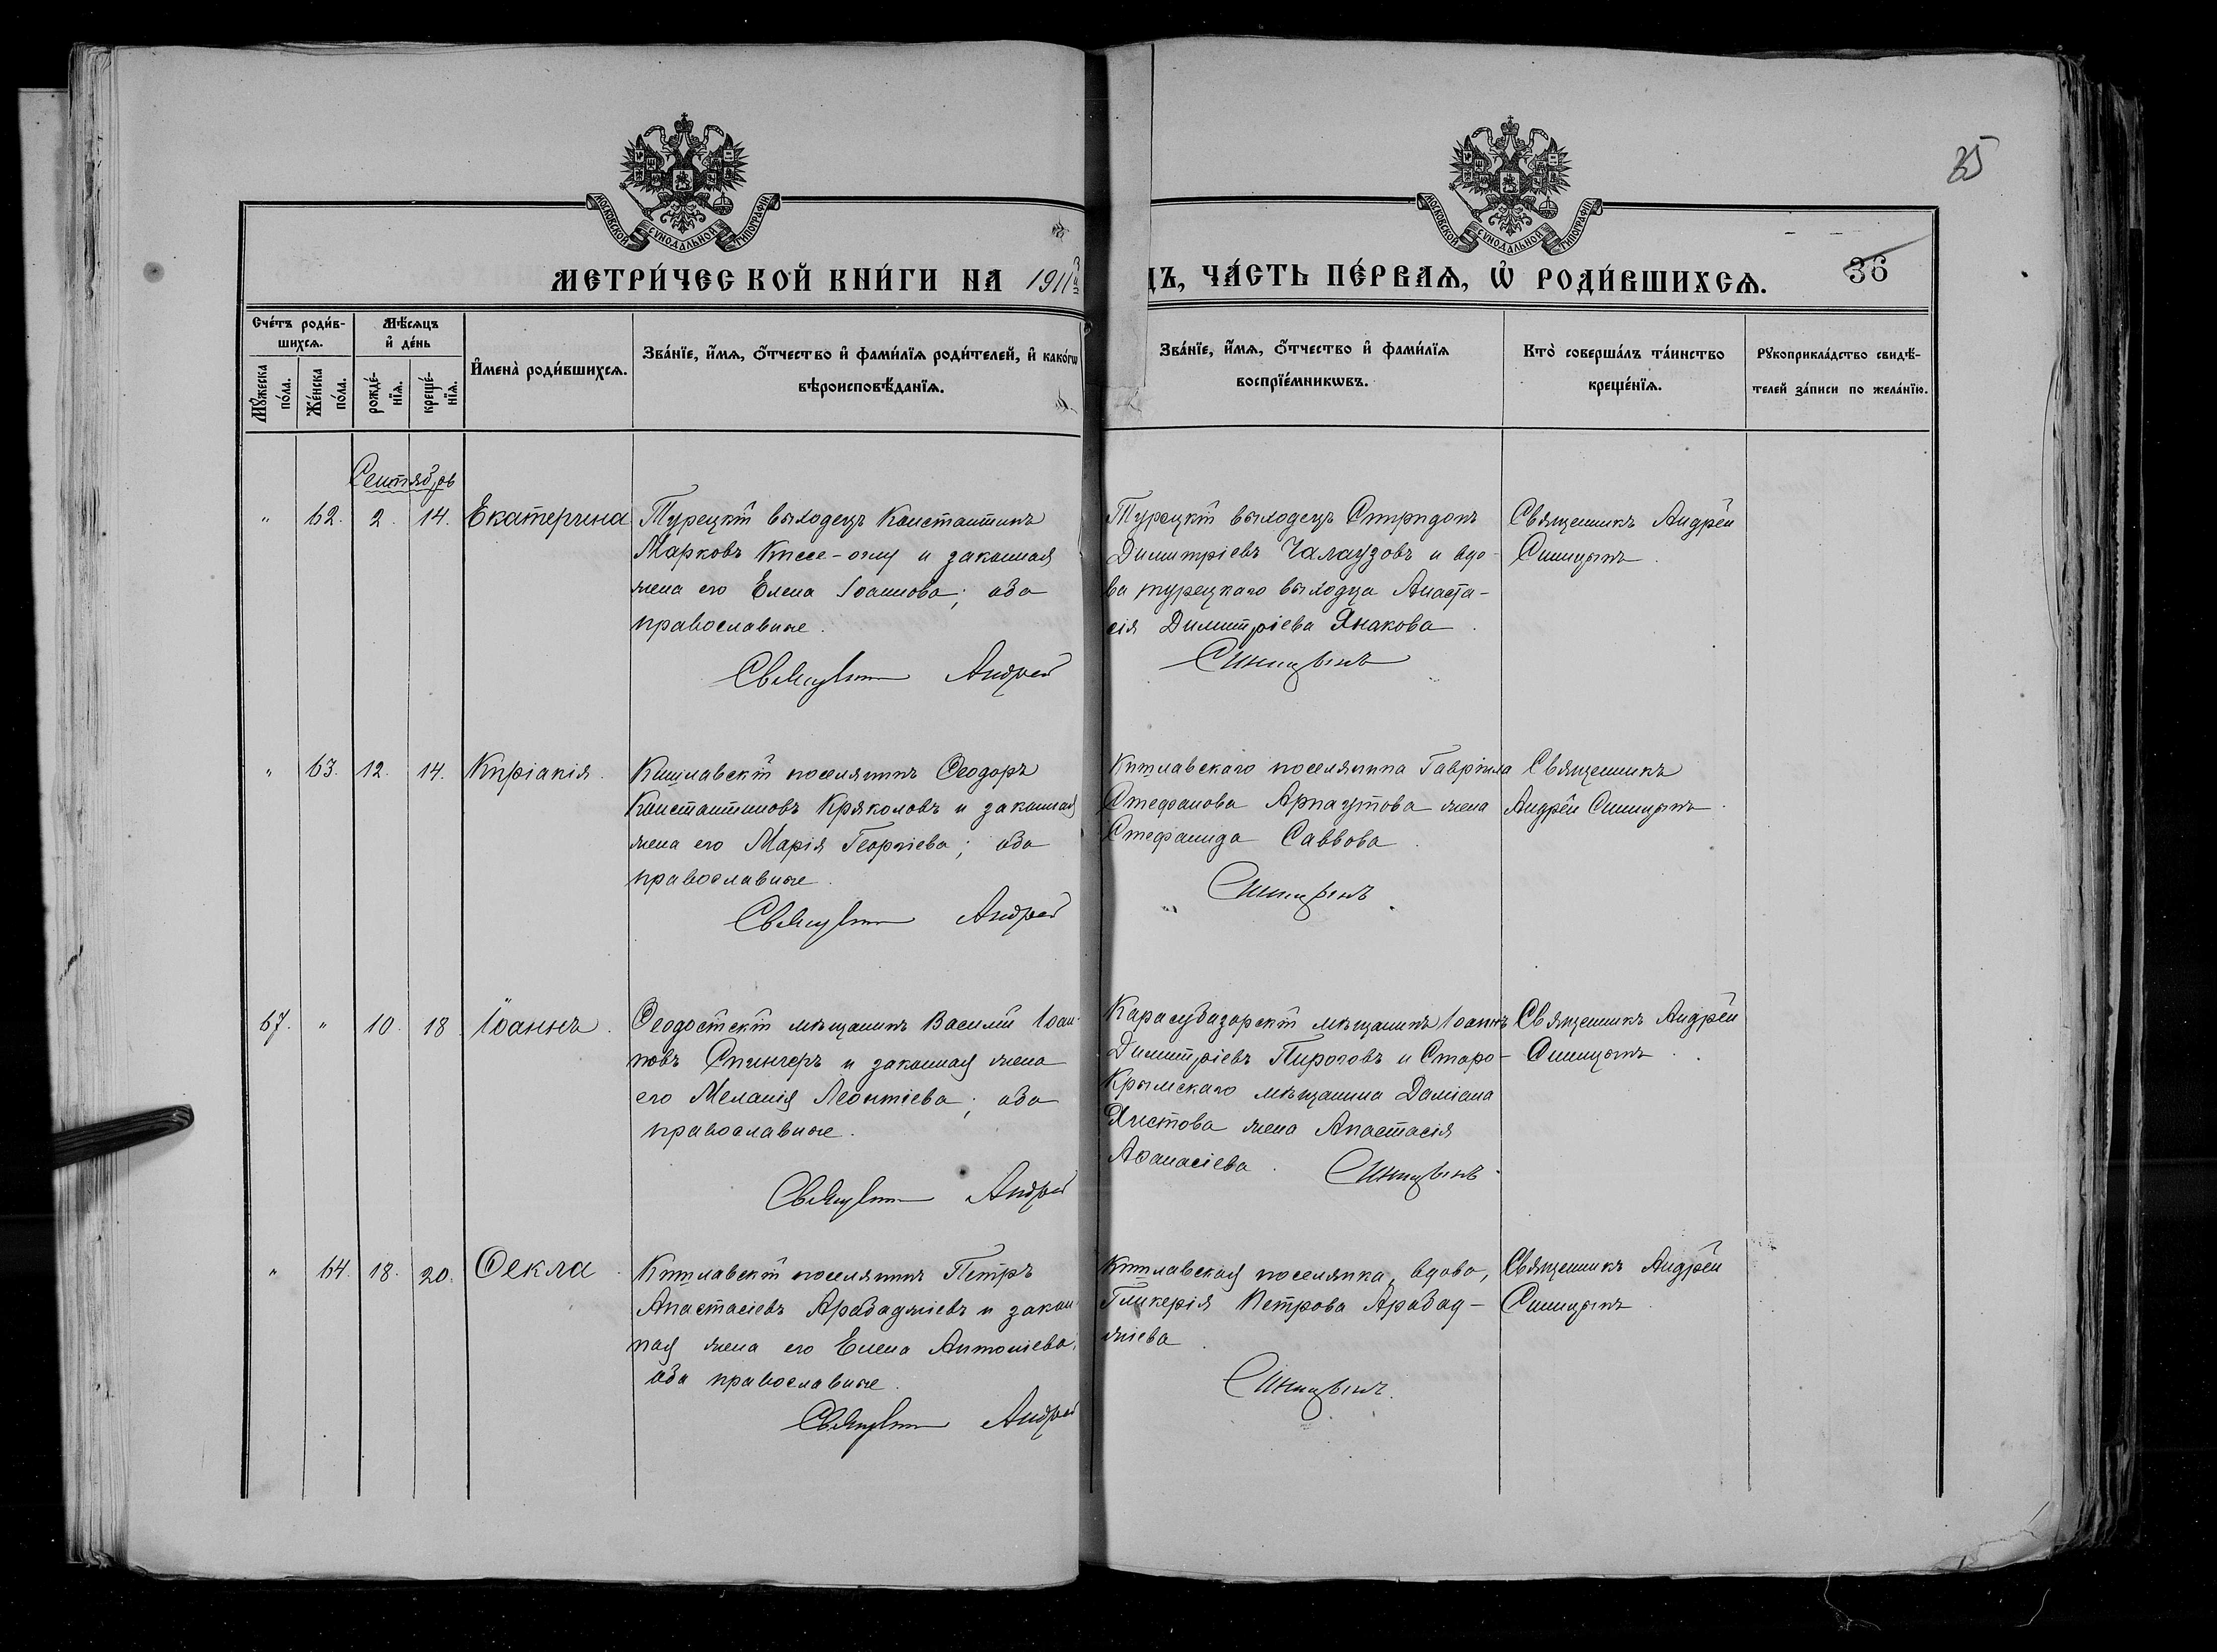 35
МОСКОВСКОЙ СУНОДАЛЬНОЙ ТИПОГРАФІИ
МОСКОВСКОЙ СУНОДАЛЬНОЙ ТИПОГРАФІИ
МЕТРИ́ЧЕСКОЙ КНИ́ГИ НА 1911
ДЪ, ЧА́СТЬ ПЕ́РВАѦ, Ѡ҆ РОДИ́ВШИХСѦ.
36
Сче́тъ роди́в-
шихсѧ.
Мꙋ́жеска
по́ла.
Же́нска
по́ла.
Мѣ́сѧцъ
и҆ де́нь
рожде́-
нїѧ.
креще́-
нїѧ.
И҆мена̀ роди́вшихсѧ.
Зва́нїе, и҆́мѧ, ѻ҆́тчество и҆ фами́лїѧ роди́телей, и҆ како́гѡ
вѣроисповѣ́данїѧ.
Зва́нїе, и҆́мѧ, ѻ҆́тчество и҆ фами́лїѧ
воспрїе́мникѡвъ.
Кто̀ соверша́лъ та́инство
креще́нїѧ.
Рꙋкоприкла́дство свидѣ́-
телей за́писи по жела́нїю.
Сентябрь
" 62. 2. 14. Екатерина
Турецкій выходецъ Константинъ
Марковъ Киссе-оглу и законная
жена его Елена Іоаннова; оба
православные.
Священникъ Андрей
Турецкій выходецъ Спиридонъ
Димитріевъ Чалаузовъ и вдо-
ва турецкаго выходца Анаста-
сія Димитріева Янакова.
Синицынъ
Священникъ Андрей
Синицынъ.
" 63. 12. 14. Киріакія.
Кишлавскій поселянинъ Ѳеодоръ
Константиновъ Кряколовъ и законная
жена его Марія Георгіева; оба
православные.
Священникъ Андрей
Кишлавскаго поселянина Гавріила
Стефанова Арнаутова жена
Стефанида Саввова.
Синицынъ
Священникъ
Андрей Синицынъ.
67. " 10. 18. Іоаннъ.
Ѳеодосійскій мѣщанинъ Василій Іоан-
новъ Спингеръ и законная жена
его Меланія Леонтіева; оба
православные.
Священникъ Андрей
Карасубазарскій мѣщанинъ Іоаннъ
Димитріевъ Пироговъ и Старо-
Крымскаго мѣщанина Даміана
Христова жена Анастасія
Аѳанасіева.
Синицынъ
Священникъ Андрей
Синицынъ.
" 64. 18. 20. Ѳекла.
Кишлавскій поселянинъ Петръ
Анастасіевъ Арабаджіевъ и закон-
ная жена его Елена Антоніева;
оба православные.
Священникъ Андрей
Кишлавская поселянка, вдова,
Гликерія Петрова Арабад-
жіева.
Синицынъ.
Священникъ Андрей
Синицынъ.